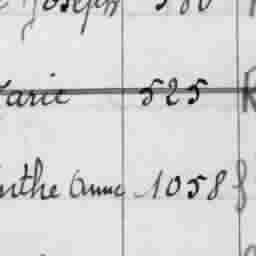 Joseph 580
Marie 525
inthe Anne 1058